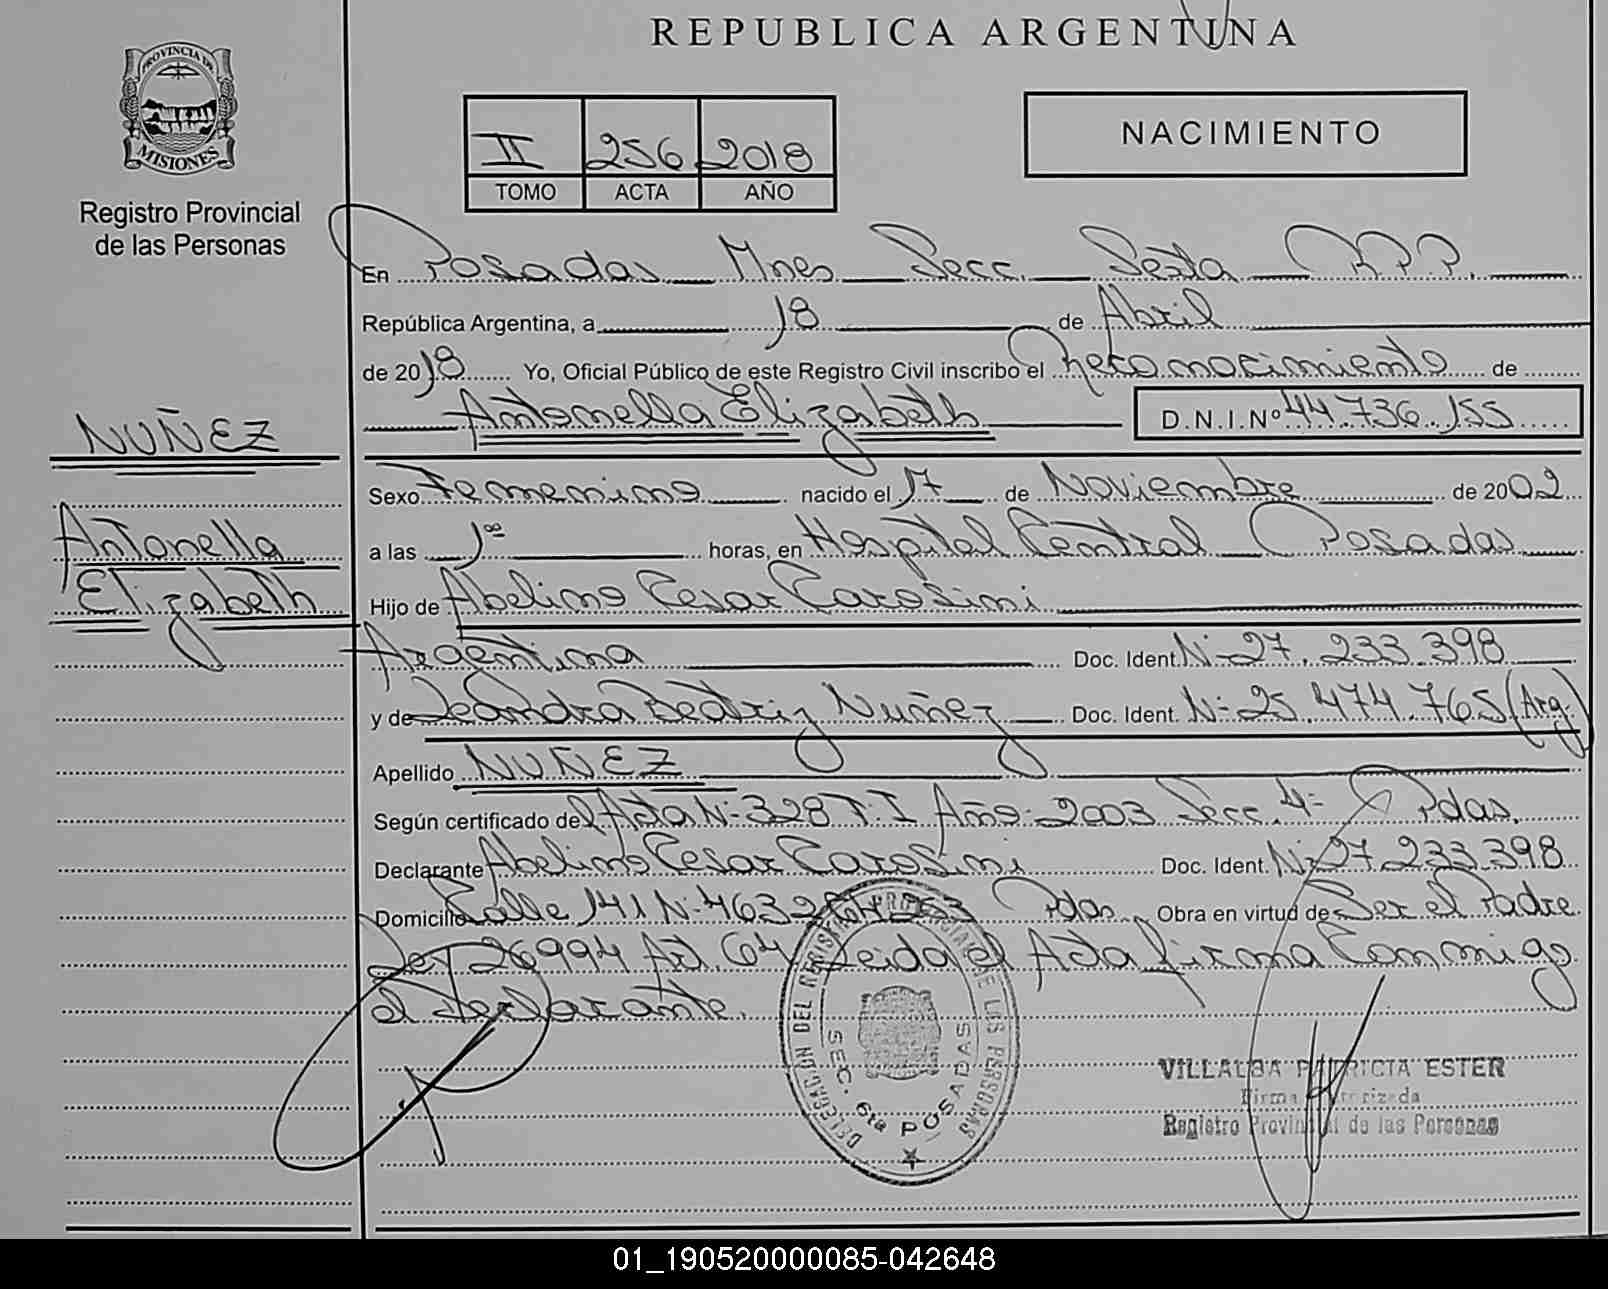 REPUBLICA ARGENTINA
PROVINCIA DE
MISIONES
Registro Provincial
de las Personas
II 256 2018
TOMO ACTA AÑO
NACIMIENTO
En Posadas Mnes Secc. Sexta R.P.P.
República Argentina, a 18 de Abril
de 2018 Yo, Oficial Público de este Registro Civil inscribo el Reconocimiento de
Antonella Elizabeth D.N.I.Nº 44.736.155
NUÑEZ
Antonella
Elizabeth
Sexo Femenino nacido el 17 de Noviembre de 2002
a las 1ºº horas, en Hospital Central Posadas
Hijo de Abelino Cesar Carosini
Argentina Doc. Ident. Nº 27.233.398
y de Leandra Beatriz Nuñez Doc. Ident. Nº 25.474.765 (Arg.)
Apellido NUÑEZ
Según certificado del Acta Nº 328 T: I Año: 2003 Secc. 4º Pdas.
Declarante Abelino Cesar Carosini Doc. Ident. Nº 27.233.398
Domicilio Calle 141 Nº 4632 Pdas. Obra en virtud de Ser el Padre
Ley 26994 Art. 64 Leida el Acta firma Conmigo
el declarante.
DELEGACION DEL REGISTRO PROVINCIAL DE LAS PERSONAS
SEC. 6ta POSADAS
VILLALBA PATRICIA ESTER
Firma Autorizada
Registro Provincial de las Personas
01_190520000085-042648